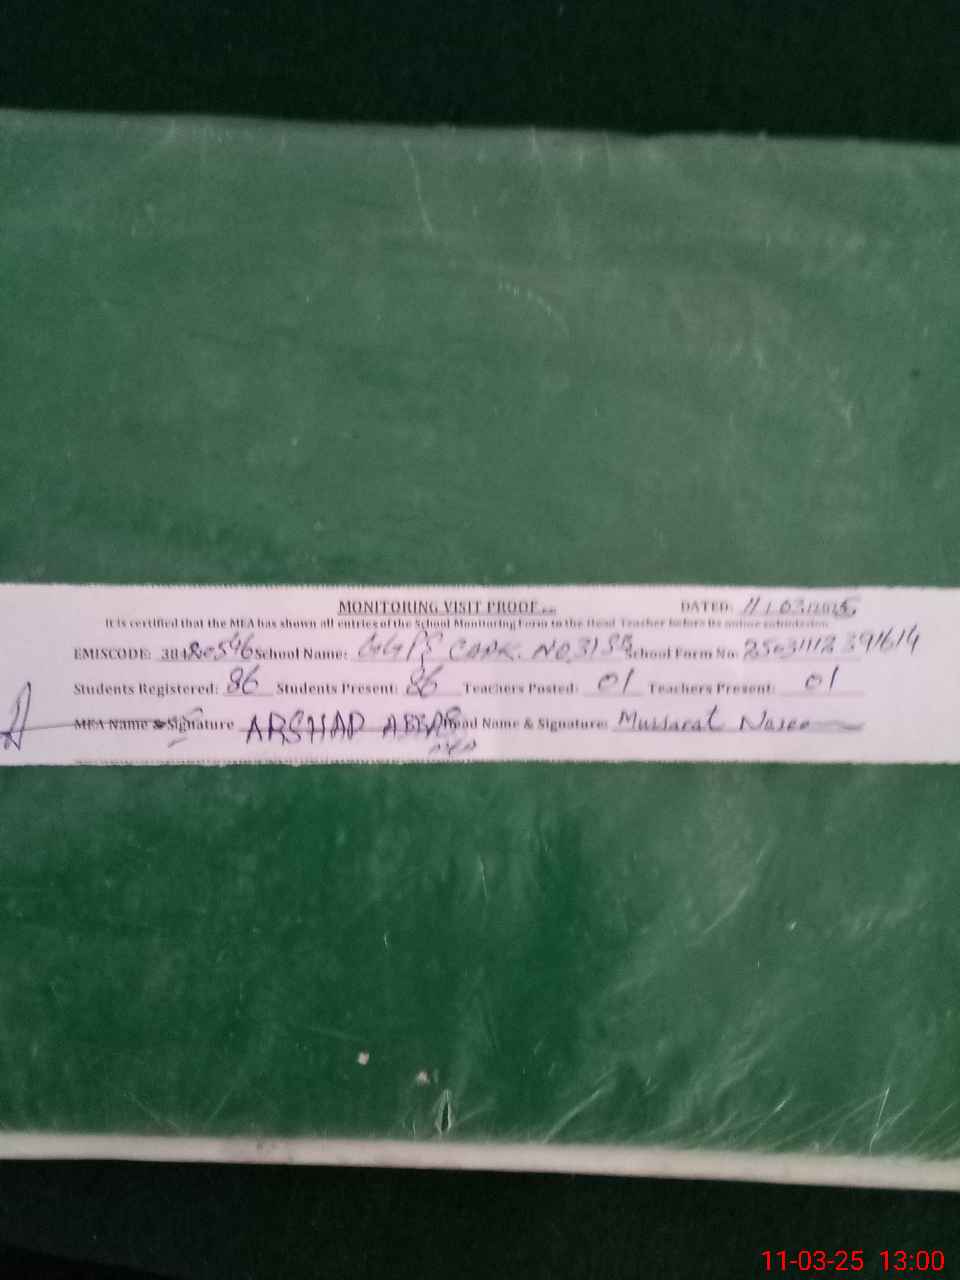 MONITORING VISIT PROOF DATED: 11/03/2025
It is certified that the MEA has shown all entries of the School Monitoring Form to the Head Teacher before its online submission
EMISCODE: 38480546 School Name: GGPS CHAK. NO 31SB School Form No: 2503111239
Students Registered: 86 Students Present: 86 Teachers Posted: 01 Teachers Present: 01
MEA Name & Signature ARSHAD ABBAS Head Name & Signature: Mussarat
11-03-25 13:00